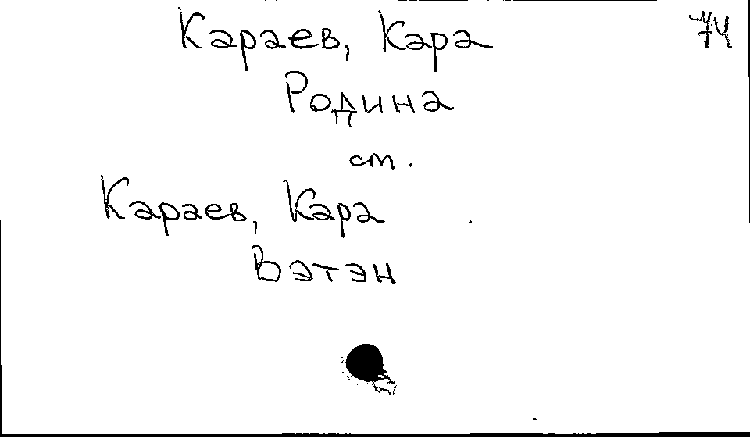 Караев, Кара 74
Родина
ст.
Караев, Кара
Вэтэн